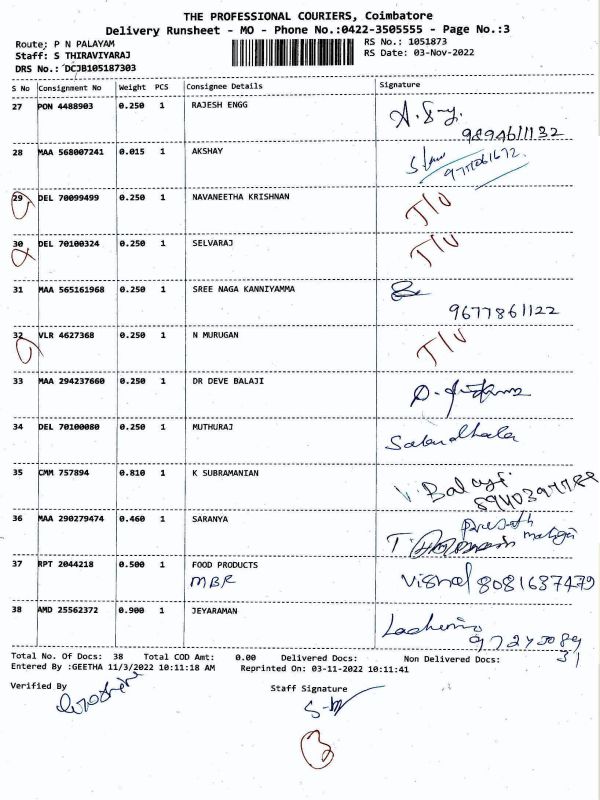 THE PROFESSIONAL COURIERS, Coimbatore
Delivery Runsheet - MO - Phone No.:0422-3505555 - Page No.:3
Route; P N PALAYAM RS No.: 1051873
Staff: S THIRAVIYARAJ RS Date: 03-Nov-2022
DRS No.: DCJB105187303
S No Consignment No Weight PCS Consignee Details Signature
27 PON 4488903 0.250 1 RAJESH ENGG
9894611132
28 MAA 568007241 0.015 1 AKSHAY
29 DEL 70099499 0.250 1 NAVANEETHA KRISHNAN
30 DEL 70100324 0.250 1 SELVARAJ
31 MAA 565161968 0.250 1 SREE NAGA KANNIYAMMA
9677861122
32 VLR 4627368 0.250 1 N MURUGAN
33 MAA 294237660 0.250 1 DR DEVE BALAJI
34 DEL 70100080 0.250 1 MUTHURAJ
35 CMM 757894 0.810 1 K SUBRAMANIAN V. Balaji
36 MAA 290279474 0.460 1 SARANYA
37 RPT 2044218 0.500 1 FOOD PRODUCTS
MBR Vishal 8081687479
38 AMD 25562372 0.900 1 JEYARAMAN
Total No. Of Docs: 38 Total COD Amt: 0.00 Delivered Docs: Non Delivered Docs:
31
Entered By :GEETHA 11/3/2022 10:11:18 AM Reprinted On: 03-11-2022 10:11:41
Verified By Staff Signature
3